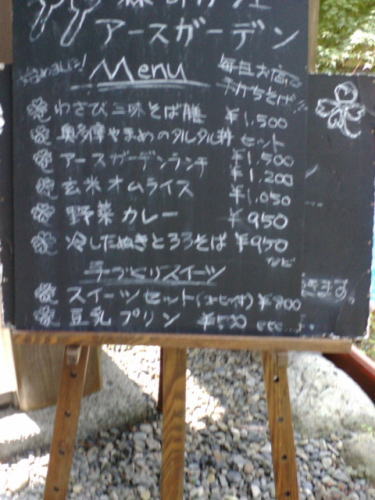 森のカフェ
アースガーデン
Menu
毎日大店の
手打ちそば
わさび三昧そば膳 ¥1,500
奥多摩やまめのタルタル丼セット
¥1,500
アースガーデンランチ ¥1,200
玄米オムライス ¥1,050
野菜カレー ¥950
冷したぬきとろろそば ¥950
など
手づくりスイーツ
スイーツセット(コーヒー付) ¥800
豆乳プリン ¥500
きます。